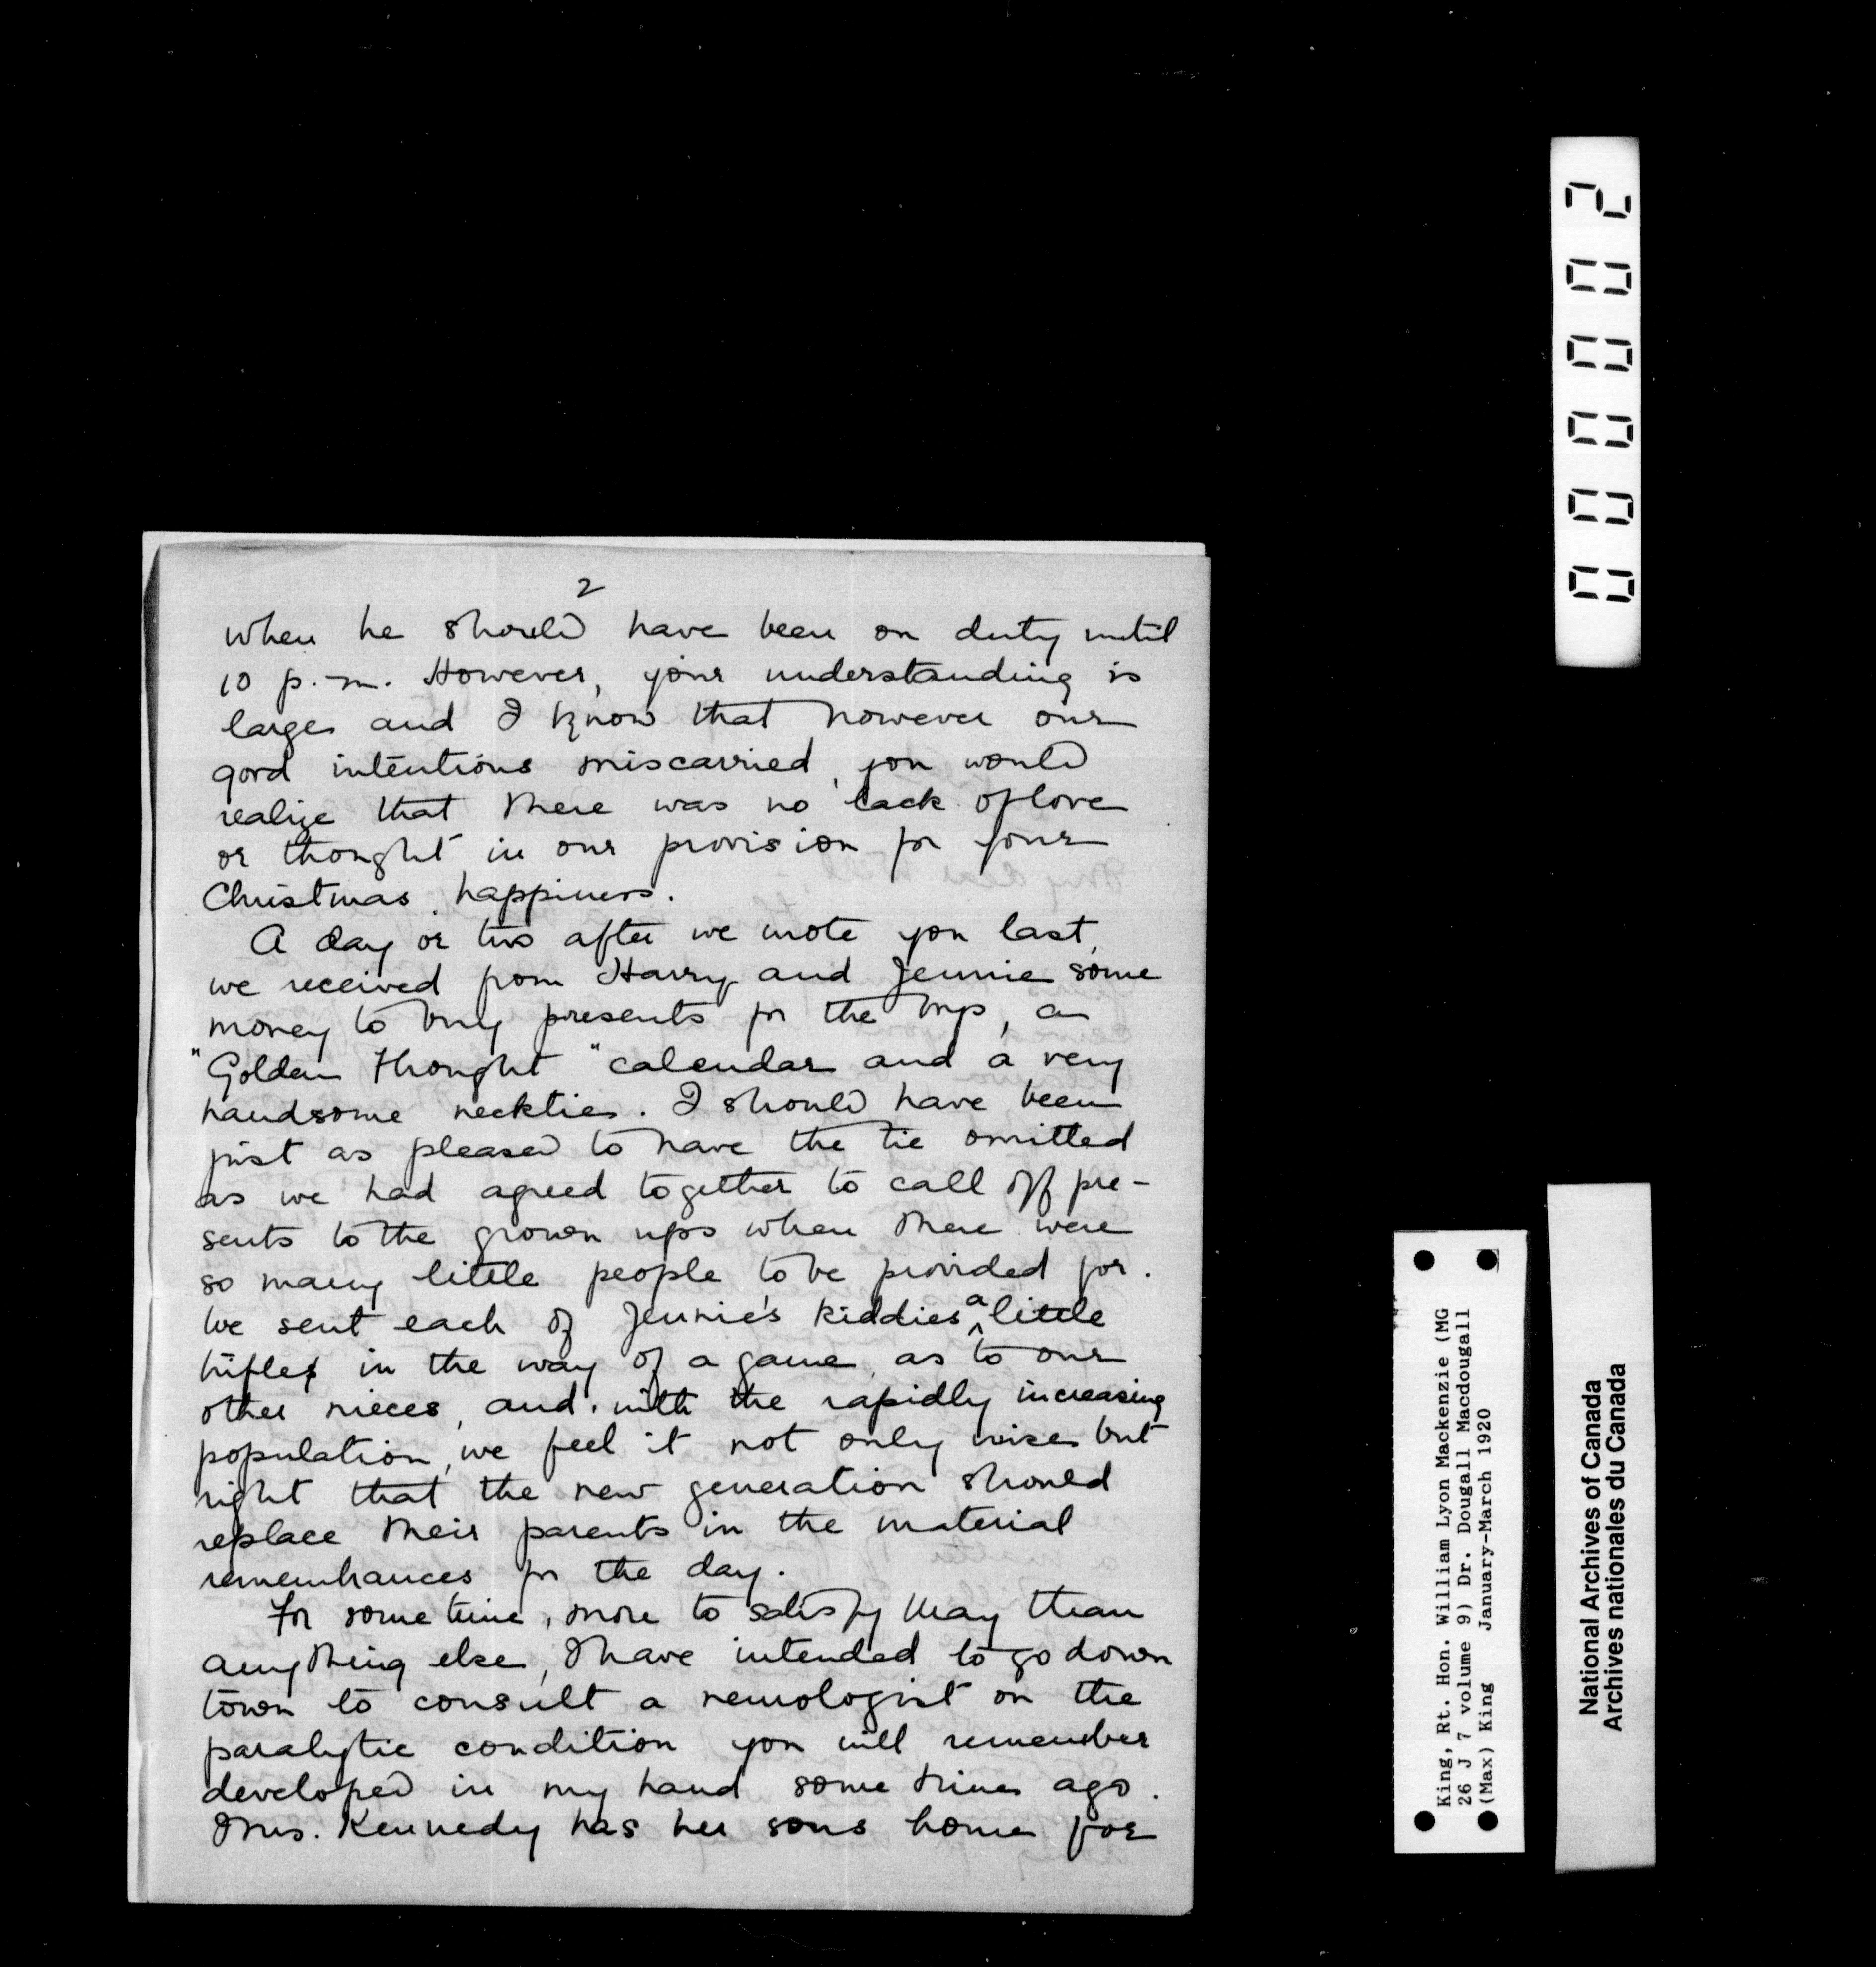 2
when he should have been on duty until
10 p.m. However, your understanding is
large and I know that however our
good intentions miscarried, you would
realize that there was no lack of love
or thought in our provision for your
Christmas happiness.
A day or two after we wrote you last,
we received from Harry and Jennie some
money to buy presents for the boys, a
"Golden Thought" calendar and a very
handsome necktie. I should have been
just as pleased to have the tie omitted
as we had agreed together to call off pre-
sents to the grown ups when there were
so many little people to be provided for.
We sent each of Jennie's kiddies a little
trifle in the way of a game, as to our
other nieces, and with the rapidly increasing
population, we feel it not only wise but
right that the new generation should
replace their parents in the material
remembrances for the day.
For some time, more to satisfy May than
anything else, I have intended to go down
town to consult a neurologist on the
paralytic condition you will remember
developed in my hand some time ago.
Mrs. Kennedy has her sons home for
000002
King, Rt. Hon. William Lyon Mackenzie (MG
26 J 7 volume 9) Dr. Dougall Macdougall
(Max) King January-March 1920
National Archives of Canada
Archives nationales du Canada